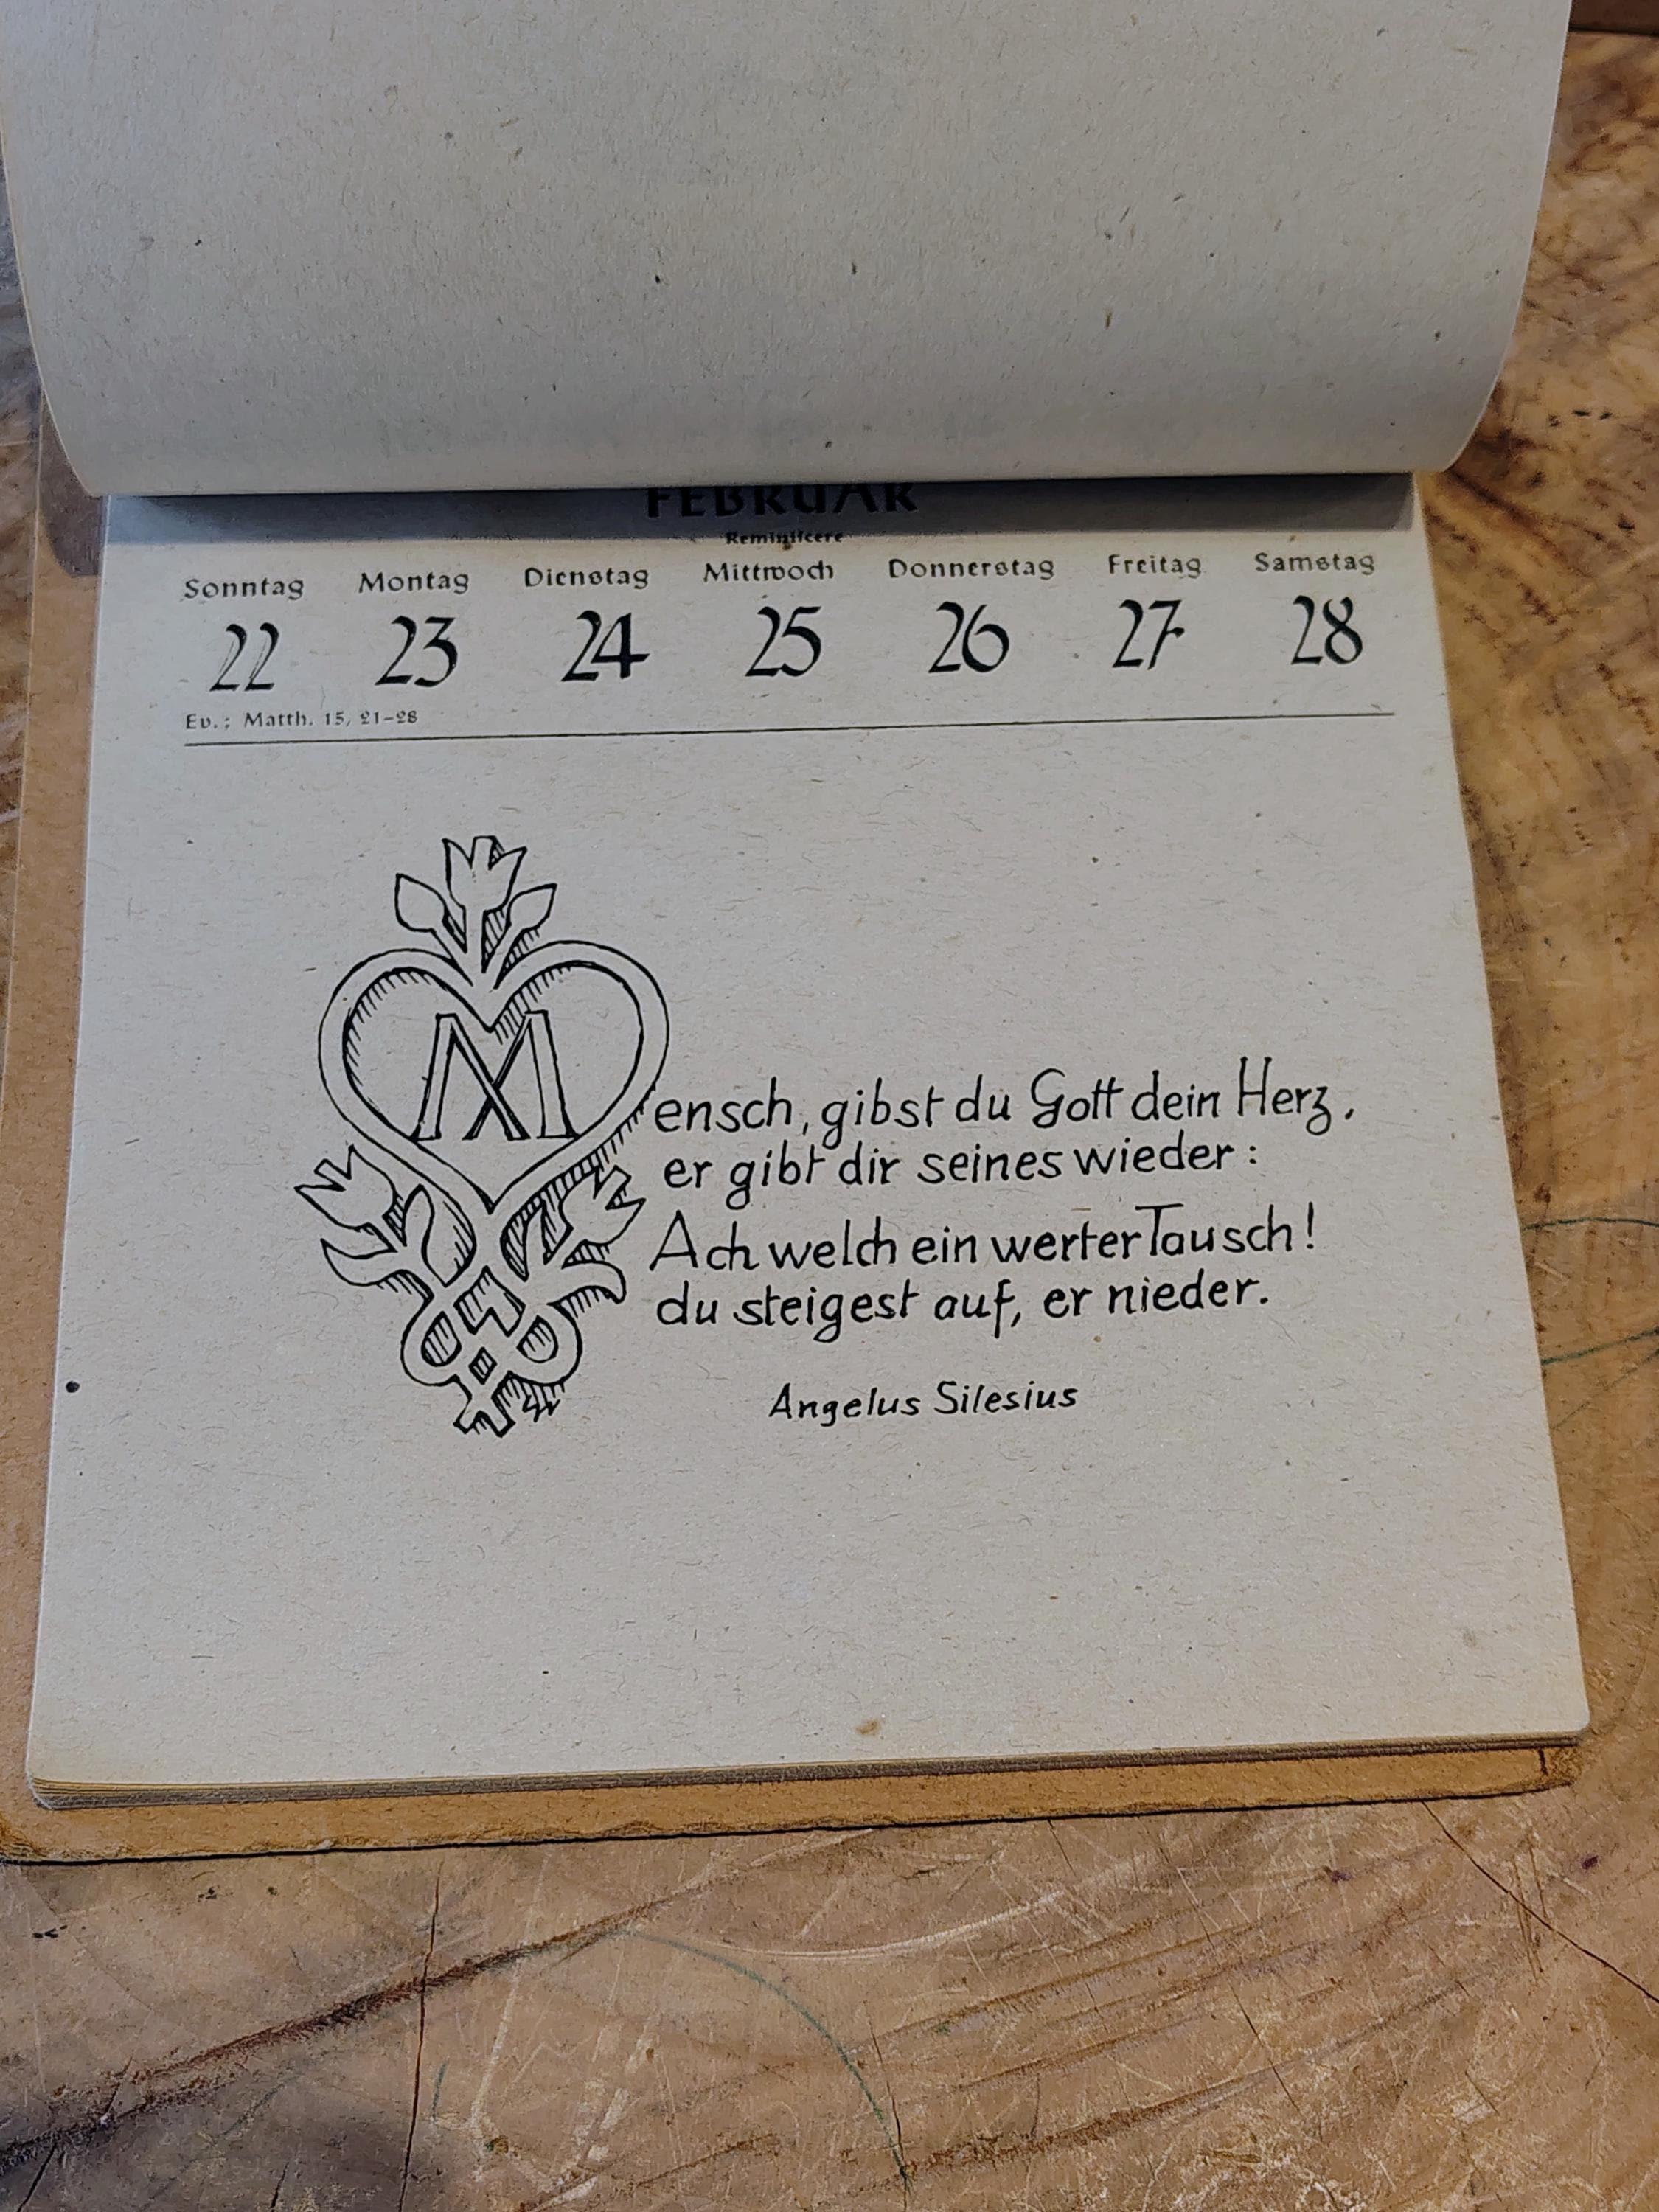 FEBRUAR
Reminiscere
Sonntag Montag Dienstag Mittwoch Donnerstag Freitag Samstag
22 23 24 25 26 27 28
Ev.: Matth. 15, 21-28
Mensch, gibst du Gott dein Herz,
er gibt dir seines wieder:
Ach welch ein werter Tausch!
du steigest auf, er nieder.
Angelus Silesius